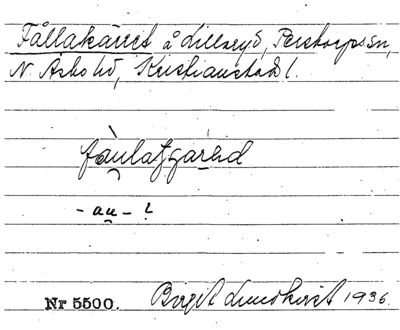 Fållakärret å Lillaryd, Perstorps sn,
N. Åsbo hd, Kristianstads l.
- au - ?
Nr 5500. Birgit Lundkvist 1936.